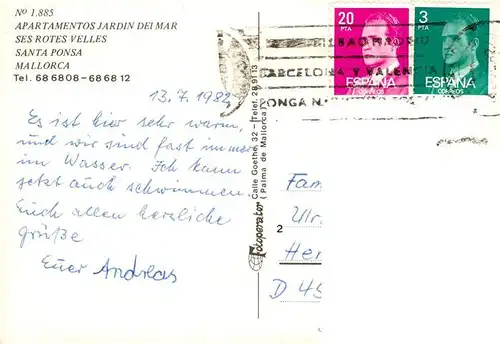 Nº 1.885
APARTAMENTOS JARDIN DEI MAR
SES ROTES VELLES
SANTA PONSA
MALLORCA
Tel. 686808-686812
13.7.1982
Es ist hier sehr warm,
und wir sind fast immer
im Wasser. Ich kann
jetzt auch schwimmen.
Euch allen herzliche
Grüße
Euer Andreas
Fotoperator Calle Goethe, 32 - Telef. 289113
(Palma de Mallorca)
20
PTA
ESPAÑA
CORREOS
3
PTA
ESPAÑA
CORREOS
BILBAO MADRID
BARCELONA Y VALENCIA
PONGA N.
Fam
Ulr
2
Her
D 45